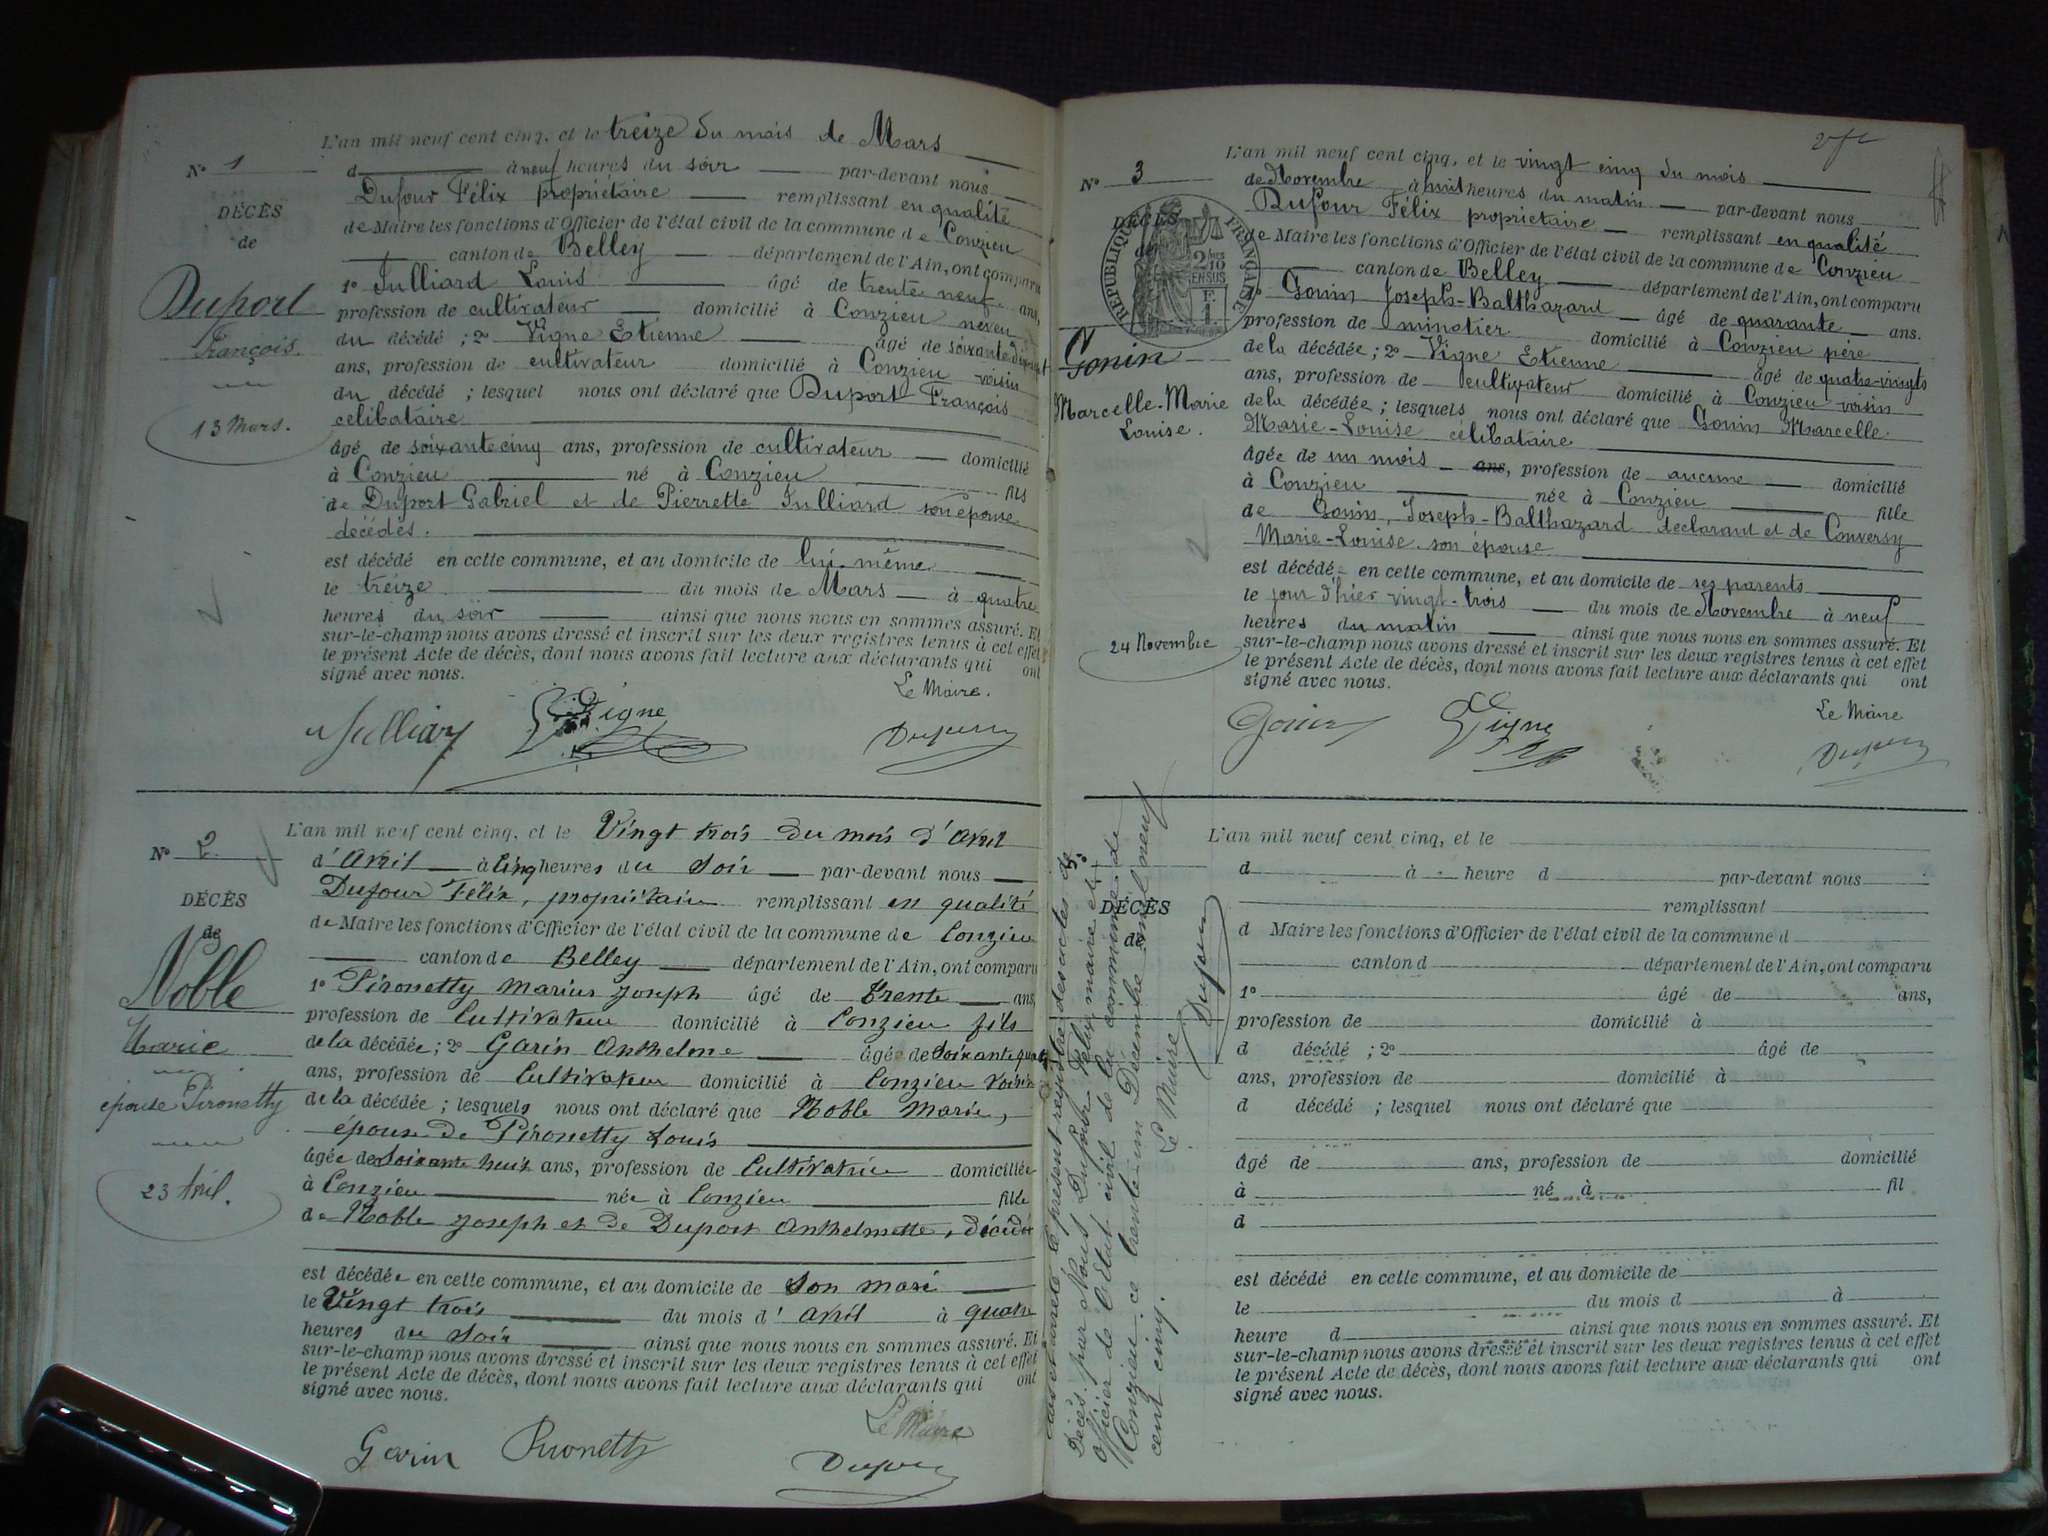 L'an mil neuf cent cinq, et le treize du mois de Mars
N° 1
d à neuf heures du soir par-devant nous
DÉCÈS
de
Duport
François.
13 Mars.
Dufour Félix propriétaire remplissant en qualité
de Maire les fonctions d'Officier de l'état civil de la commune de Conzieu
canton de Belley département de l'Ain, ont comparu
1° Julliard Louis âgé de trente neuf ans,
profession de cultivateur domicilié à Conzieu neveu
du décédé ; 2° Vigne Etienne âgé de soixante dix
ans, profession de cultivateur domicilié à Conzieu voisin
du décédé ; lesquel nous ont déclaré que Duport François
celibataire
âgé de soixante cinq ans, profession de cultivateur domicilié
à Conzieu né à Conzieu fils
de Duport Gabriel et de Pierrette Julliard son épouse
décédés.
est décédé en cette commune, et au domicile de lui même
le treize du mois de Mars à quatre
heures du soir ainsi que nous nous en sommes assuré. Et
sur-le-champ nous avons dressé et inscrit sur les deux registres tenus à cet effet
le présent Acte de décès, dont nous avons fait lecture aux déclarants qui ont
signé avec nous.
Le Maire.
Julliard Vigne Dufour
L'an mil neuf cent cinq, et le Vingt trois du mois d'Avril
N° 2
d'Avril à Cinq heures du Soir par-devant nous
DÉCÈS
de
Noble
Marie
épouse Pironetty
23 Avril.
Dufour Félix, propriétaire remplissant en qualité
de Maire les fonctions d'Officier de l'état civil de la commune de Conzieu
canton de Belley département de l'Ain, ont comparu
1° Pironetty Marius Joseph âgé de trente ans,
profession de Cultivateur domicilié à Conzieu fils
de la décédée ; 2° Garin Anthelme âgé de soixante quatre
ans, profession de Cultivateur domicilié à Conzieu voisin
de la décédée ; lesquels nous ont déclaré que Noble Marie,
épouse de Pironetty Louis
âgée de Soixante huit ans, profession de Cultivatrice domiciliée
à Conzieu née à Conzieu fille
de Noble Joseph et de Duport Anthelmette, décédés
est décédée en cette commune, et au domicile de Son mari
le Vingt trois du mois d'Avril à quatre
heures du Soir ainsi que nous nous en sommes assuré. Et
sur-le-champ nous avons dressé et inscrit sur les deux registres tenus à cet effet
le présent Acte de décès, dont nous avons fait lecture aux déclarants qui ont
signé avec nous.
Le Maire
Garin Pironetty Dufour
L'an mil neuf cent cinq, et le vingt cinq du mois
N° 3
de Novembre à huit heures du matin par-devant nous
DÉCÈS
RÉPUBLIQUE FRANÇAISE
Gonin
Marcelle-Marie
Louise.
24 Novembre
Dufour Félix proprietaire remplissant en qualité
de Maire les fonctions d'Officier de l'état civil de la commune de Conzieu
canton de Belley département de l'Ain, ont comparu
1° Gonin Joseph-Balthazard âgé de quarante ans.
profession de minotier domicilié à Conzieu père
de la décédée ; 2° Vigne Etienne âgé de quatre-vingts
ans, profession de cultivateur domicilié à Conzieu voisin
de la décédée ; lesquels nous ont déclaré que Gonin Marcelle-
Marie-Louise célibataire
âgée de un mois ans, profession de aucune domicilié
à Conzieu née à Conzieu fille
de Gonin, Joseph-Balthazard declarant et de Conversy
Marie-Louise son épouse
est décédée en cette commune, et au domicile de ses parents
le jour d'hier vingt-trois du mois de Novembre à neuf
heures du matin ainsi que nous nous en sommes assuré. Et
sur-le-champ nous avons dressé et inscrit sur les deux registres tenus à cet effet
le présent Acte de décès, dont nous avons fait lecture aux déclarants qui ont
signé avec nous.
Le Maire
Gonin Vigne Dufour
Clos et arrêté le présent registre des actes de
Décès par Nous Dufour Félix maire et
officier de l'état civil de la commune de
Conzieu ce trente et un Décembre mil neuf
cent cinq.
Le Maire
Dufour
L'an mil neuf cent cinq, et le
d à heure d par-devant nous
DÉCÈS
de
remplissant
d Maire les fonctions d'Officier de l'état civil de la commune d
canton d département de l'Ain, ont comparu
1° âgé de ans,
profession de domicilié à
d décédé ; 2° âgé de
ans, profession de domicilié à
d décédé ; lesquel nous ont déclaré que
âgé de ans, profession de domicilié
à né à fil
d
est décédé en cette commune, et au domicile de
le du mois d à
heure d ainsi que nous nous en sommes assuré. Et
sur-le-champ nous avons dressé et inscrit sur les deux registres tenus à cet effet
le présent Acte de décès, dont nous avons fait lecture aux déclarants qui ont
signé avec nous.